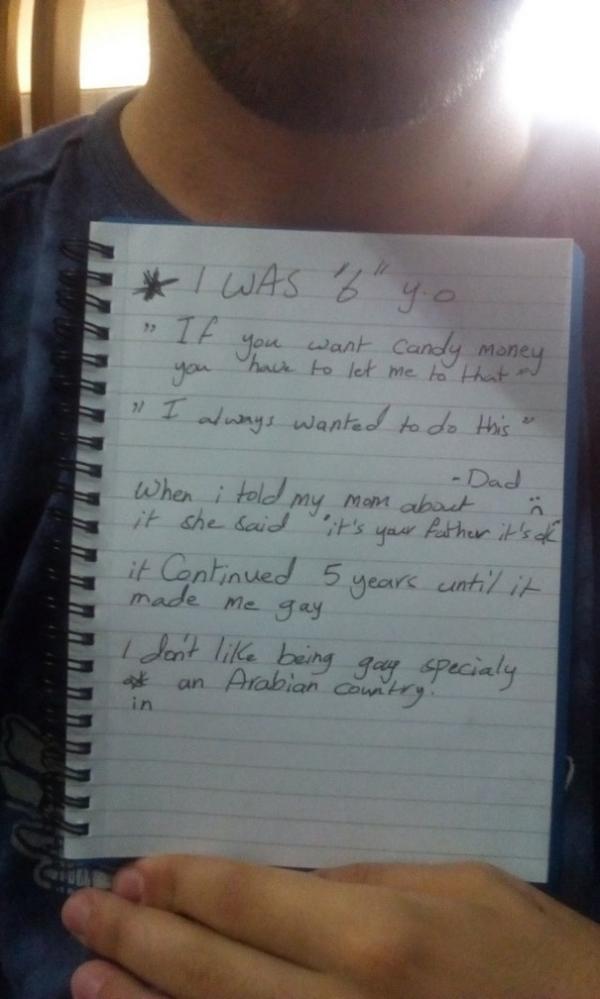 * I WAS "6" y.o
" If you want candy money
you have to let me to that "
" I always wanted to do this "
- Dad
When i told my mom about :(
it she said "it's your father it's ok"
it Continued 5 years until it
made me gay
I don't like being gay specialy
an Arabian country.
in